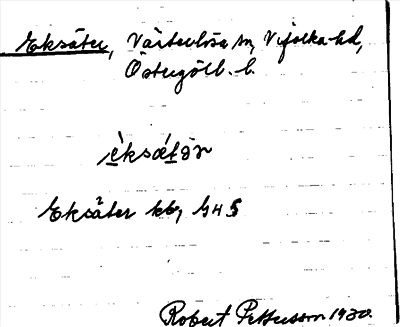 Eksäter, Västerlösa sn, Vifolka hd,
Östergötl. l.
èksǽtər
Eksäter kb, G45
Robert Pettersson 1930.